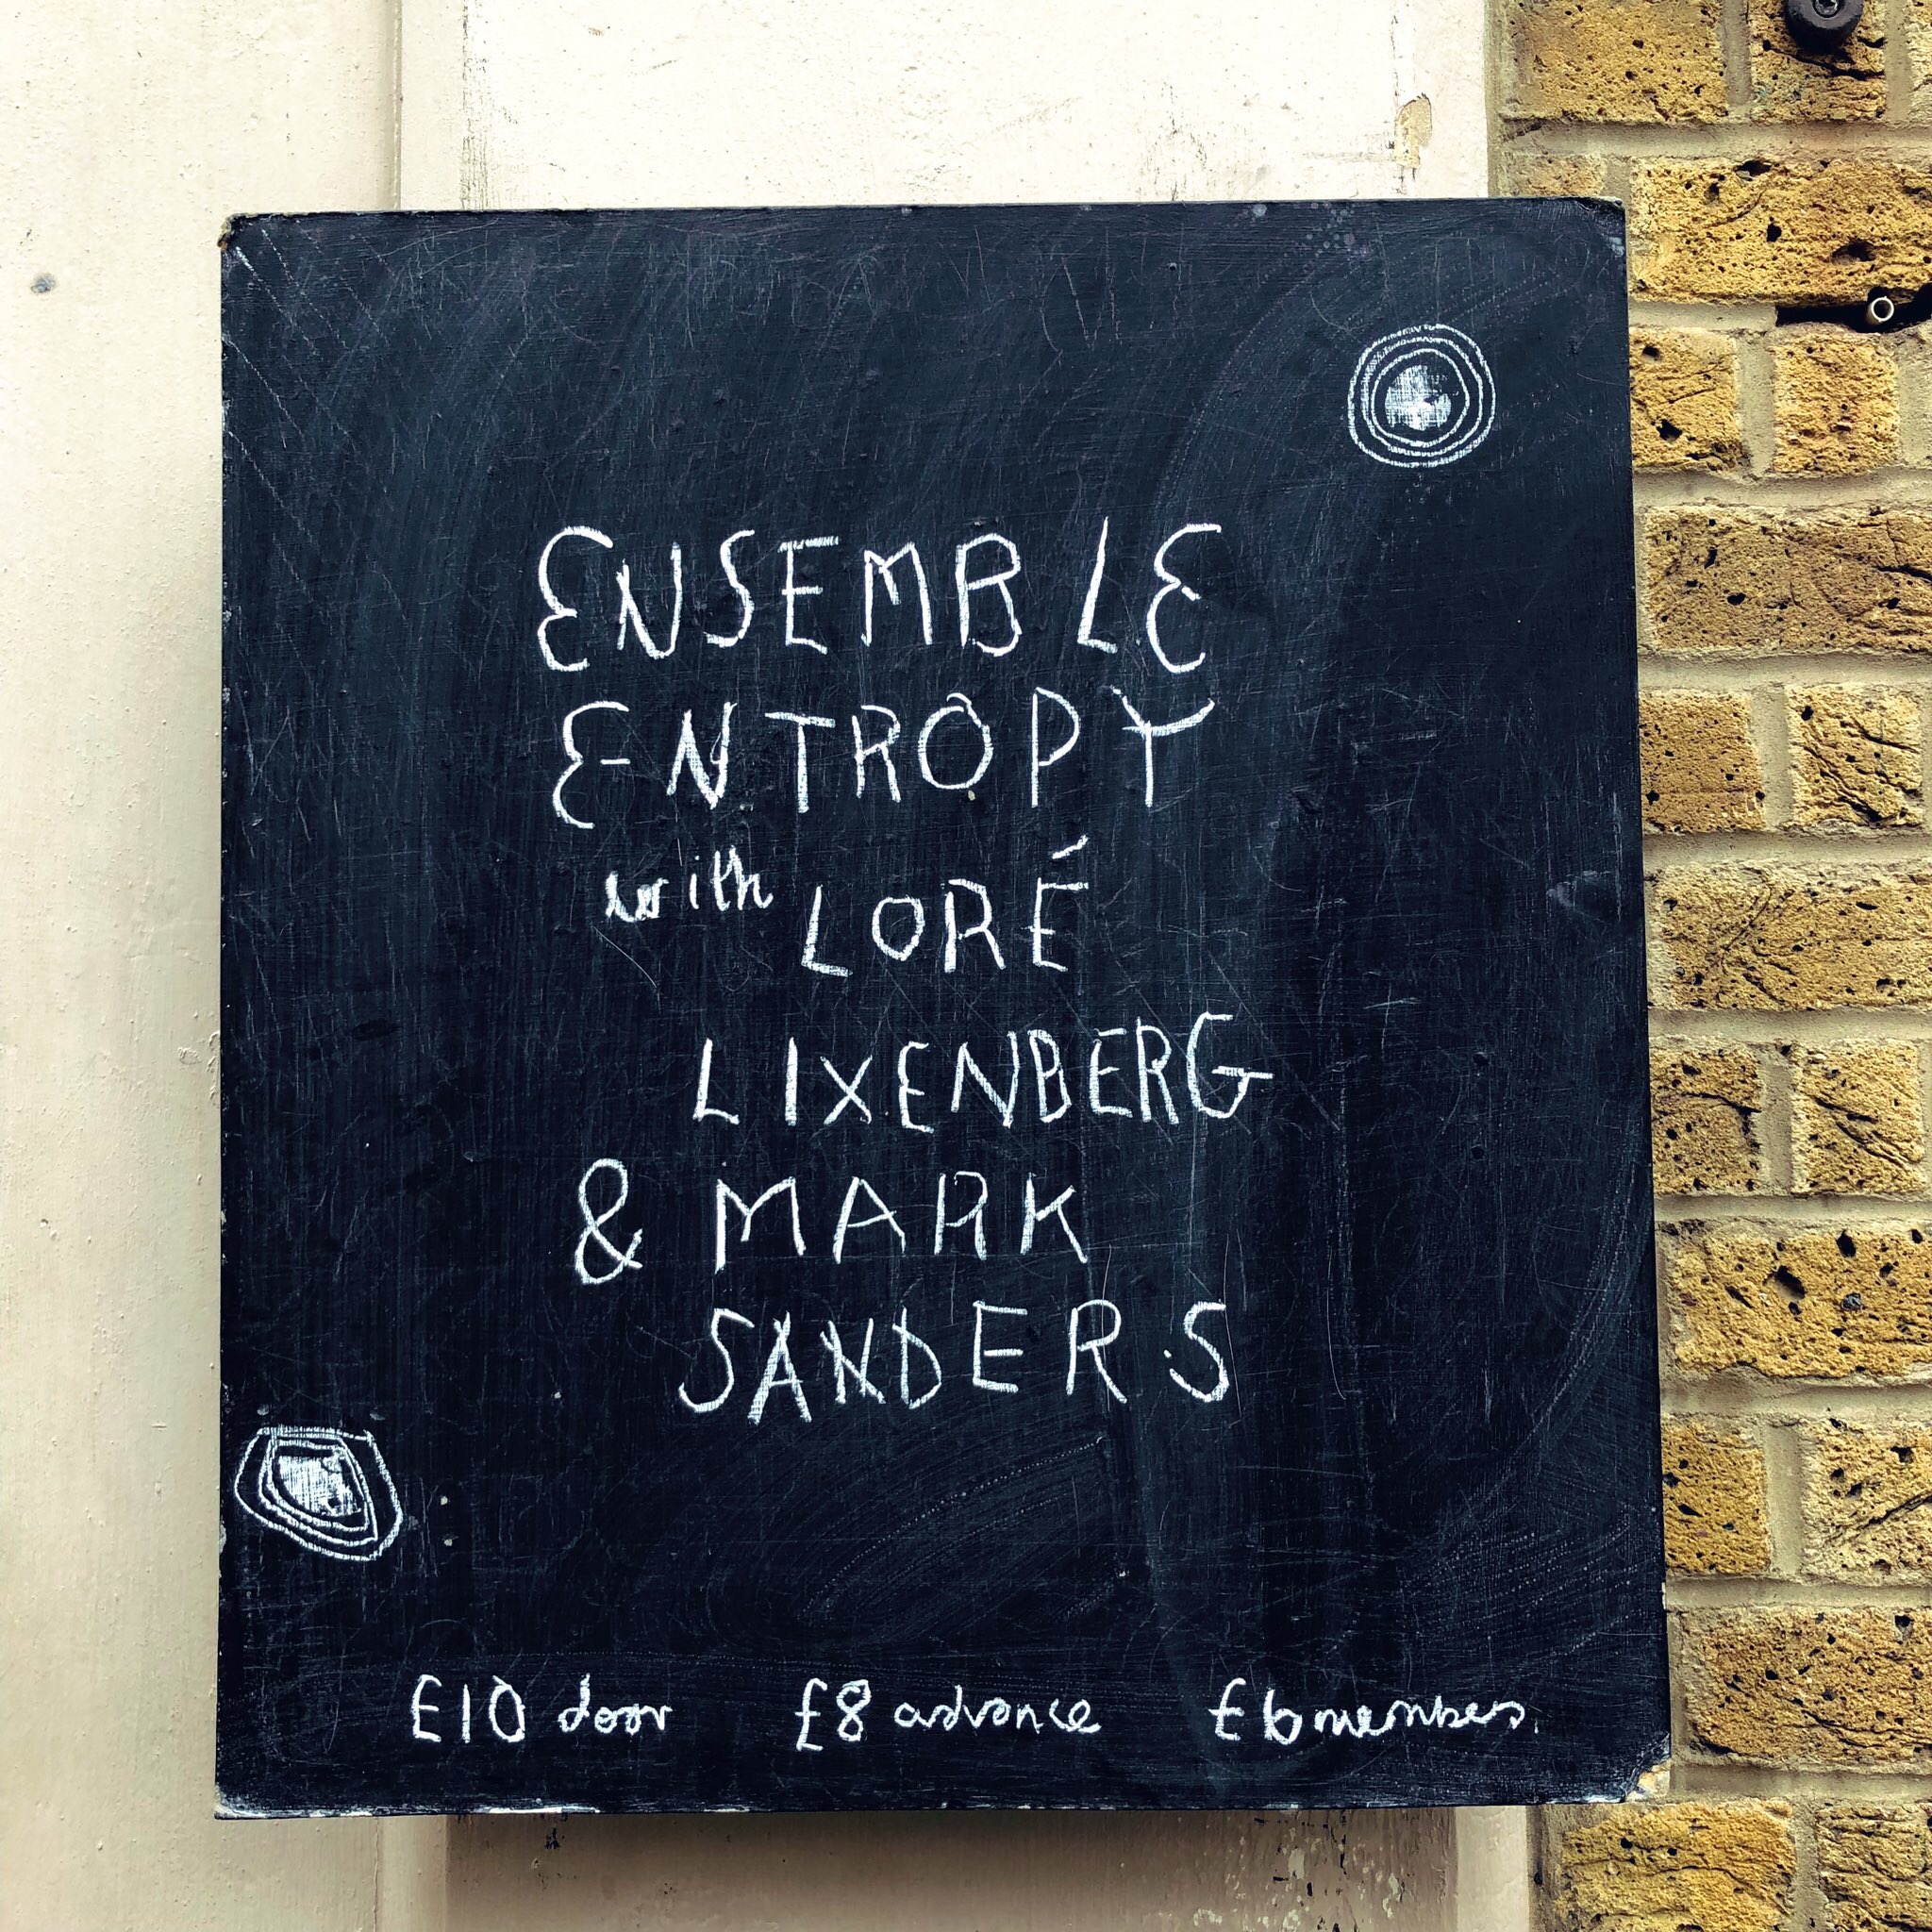 ENSEMBLE
ENTROPY
with LORÉ
LIXENBERG
& MARK
SANDERS
£10 door £8 advance £6 members.